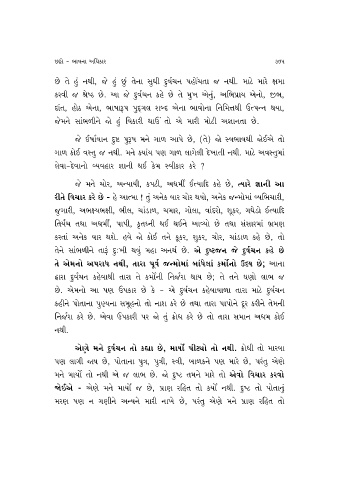 છઠ્ઠો - ક્ષમના અધિકાર ૩૭૫
છે તે હું નથી, જે હું છું તેના સુધી દુર્વચન પહોંચતા જ નથી. માટે મારે ક્ષમા
કરવી જ શ્રેષ્ઠ છે. આ જે દુર્વચન કહે છે તે મુખ એનું, અભિપ્રાય એનો, જીભ,
દાંત, હોઠ એના, ભાષારૂપ પુદ્ગલ શબ્દ એના ભાવોના નિમિત્તથી ઉત્પન્ન થયા,
જેમને સાંભળીને જો હું વિકારી થાઉં તો એ મારી મોટી અજ્ઞાનતા છે.
જે ઈર્ષાવાન દુષ્ટ પુરૂષ મને ગાળ આપે છે, (તે) જો સ્વભાવથી જોઈએ તો
ગાળ કોઈ વસ્તુ જ નથી. મને ક્યાંય પણ ગાળ લાગેલી દેખાતી નથી. માટે અવસ્તુમાં
લેવા-દેવાનો વ્યવહાર જ્ઞાની થઈ કેમ સ્વીકાર કરે ?
જે મને ચોર, અન્યાયી, કપટી, અધર્મી ઈત્યાદિ કહે છે, ત્યારે જ્ઞાની આ
રીતે વિચાર કરે છે - હે આત્મા ! તું અનેક વાર ચોર થયો, અનેક જન્મોમાં વ્યભિચારી,
જુગારી, અભક્ષ્યભક્ષી, ભીલ, ચાંડાળ, ચમાર, ગોલા, વાંદરો, શૂકર, ગધેડો ઈત્યાદિ
તિર્યંચ તથા અધર્મી, પાપી, કૃતઘ્ની થઈ થઈને આવ્યો છે તથા સંસારમાં ભ્રમણ
કરતાં અનેક વાર થશે. હવે જો કોઈ તને કૂકર, શૂકર, ચોર, ચાંડાળ કહે છે, તો
તેને સાંભળીને તારૂં દુઃખી થવું મહા અનર્થ છે. એ દુષ્ટજન જે દુર્વચન કહે છે
તે એમનો અપરાધ નથી, તારા પૂર્વ જન્મોમાં બાંધેલાં કર્મોનો ઉદય છે; આના
દ્વારા દુર્વચન કહેવાથી તારા તે કર્મોની નિર્જરા થાય છે; તે તને ઘણો લાભ જ
છે. એમનો આ પણ ઉપકાર છે કે - એ દુર્વચન કહેવાવાળા તારા માટે દુર્વચન
કહીને પોતાના પુણ્યના સમૂહનો તો નાશ કરે છે તથા તારા પાપોને દૂર કરીને તેમની
નિર્જરા કરે છે. એવા ઉપકારી પર જો તું ક્રોધ કરે છે તો તારા સમાન અધમ કોઈ
નથી.
એણે મને દુર્વચન તો કહ્યા છે, માર્યો પીટ્યો તો નથી. ક્રોધી તો મારવા
પણ લાગી જાય છે, પોતાના પુત્ર, પુત્રી, સ્ત્રી, બાળકને પણ મારે છે, પરંતુ એણે
મને માર્યો તો નથી એ જ લાભ છે. જો દુષ્ટ તમને મારે તો એવો વિચાર કરવો
જોઈએ - એણે મને માર્યો જ છે, પ્રાણ રહિત તો કર્યો નથી. દુષ્ટ તો પોતાનું
મરણ પણ ન ગણીને અન્યને મારી નાખે છે, પરંતુ એણે મને પ્રાણ રહિત તો